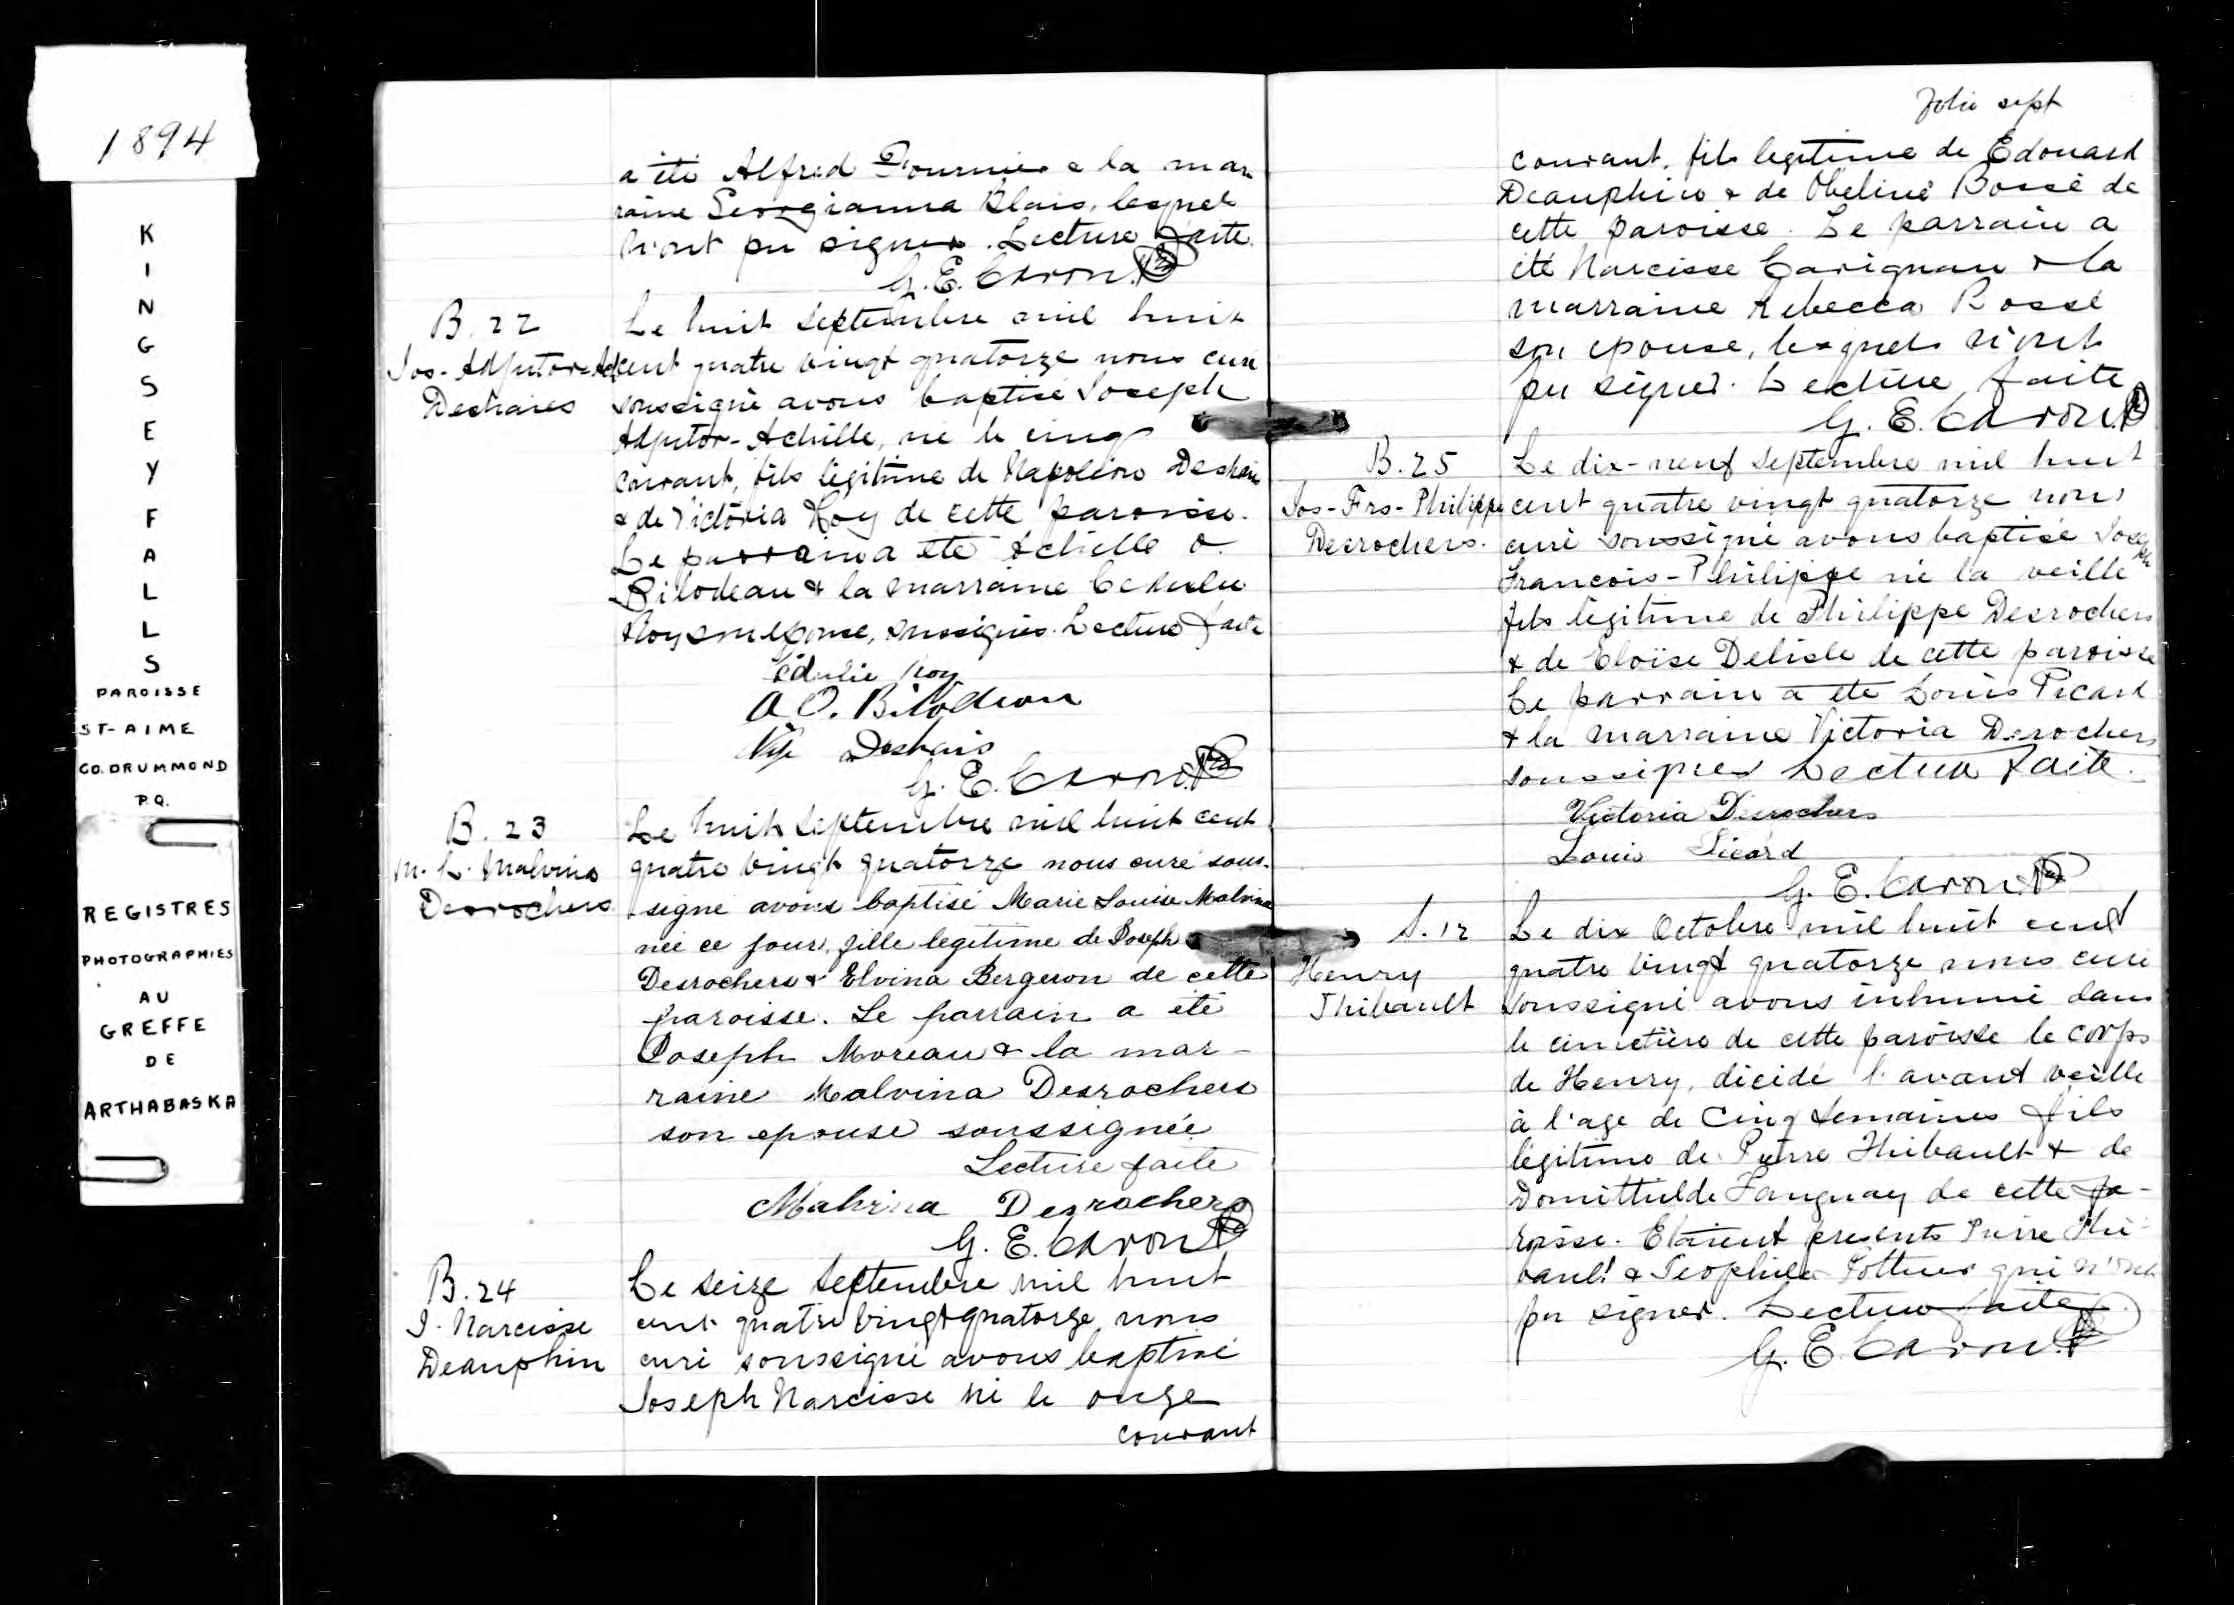 1894
KINGSEY FALLS
PAROISSE
ST-AIME
CO. DRUMMOND
P.Q.
REGISTRES
PHOTOGRAPHIES
AU
GREFFE
DE
ARTHABASKA
a été Alfred Fournier & la mar
raine Georgianna Blais, lesquels
n'ont pu signer. Lecture faite.
G. E. Caron
B. 22
Jos-Adjutor-Ach
Deshaies
Le huit septembre mil huit
cent quatre vingt quatorze nous curé
soussigné avons baptisé Joseph
Adjutor-Achille, né le cinq
courant, fils légitime de Napoléon Deshaies
& de Victoria Roy de cette paroisse.
Le parrain a été Achille O.
Bilodeau & la marraine Cédulie
Roy son épouse, soussignés. Lecture faite
Cédulie Roy
A O. Bilodeau
Nap Deshais
G. E. Caron
B. 23
M. L. Malvina
Desrochers
Le huit septembre mil huit cent
quatre vingt quatorze nous curé sous-
signé avons baptisé Marie Louise Malvina
née ce jour, fille légitime de Joseph
Desrochers & Elvina Bergeron de cette
paroisse. Le parrain a été
Joseph Moreau & la mar-
raine Malvina Desrochers
son epouse soussignée
Lecture faite
Malvina Desrochers
G. E. Caron
B. 24
J. Narcisse
Deauphin
Le seize septembre mil huit
cent quatre vingt quatorze nous
curé soussigné avons baptisé
Joseph Narcisse né le onze
courant
Folio sept
courant, fils legitime de Edouard
Deauphin & de Obeline Bossé de
cette paroisse. Le parrain a
été Narcisse Carignan & la
marraine Rebecca Rossé
son epouse, lesquels n'ont
pu signer. Lecture faite
G. E. Caron
B. 25
Jos-Frs-Philippe
Desrochers.
Le dix-neuf septembre mil huit
cent quatre vingt quatorze nous
curé soussigné avons baptisé Joseph
François-Philippe né la veille
fils légitime de Philippe Desrochers
& de Eloïse Delisle de cette paroisse
Le parrain a été Louis Picard
& la marraine Victoria Desrochers
soussignés Lecture faite.
Victoria Desrochers
Louis Picard
G. E. Caron
S. 12
Henry
Thibault
Le dix Octobre mil huit cent
quatre vingt quatorze nous curé
soussigné avons inhumé dans
le cimetière de cette paroisse le corps
de Henry, décidé l'avant veille
à l'age de cinq semaines fils
légitime de Pierre Thibault & de
Domithilde Tanguay de cette pa-
roisse. Etaient presents Pierre Thi-
bault & Teophile Pottier qui n'ont
pu signer. Lecture faite
G. E. Caron